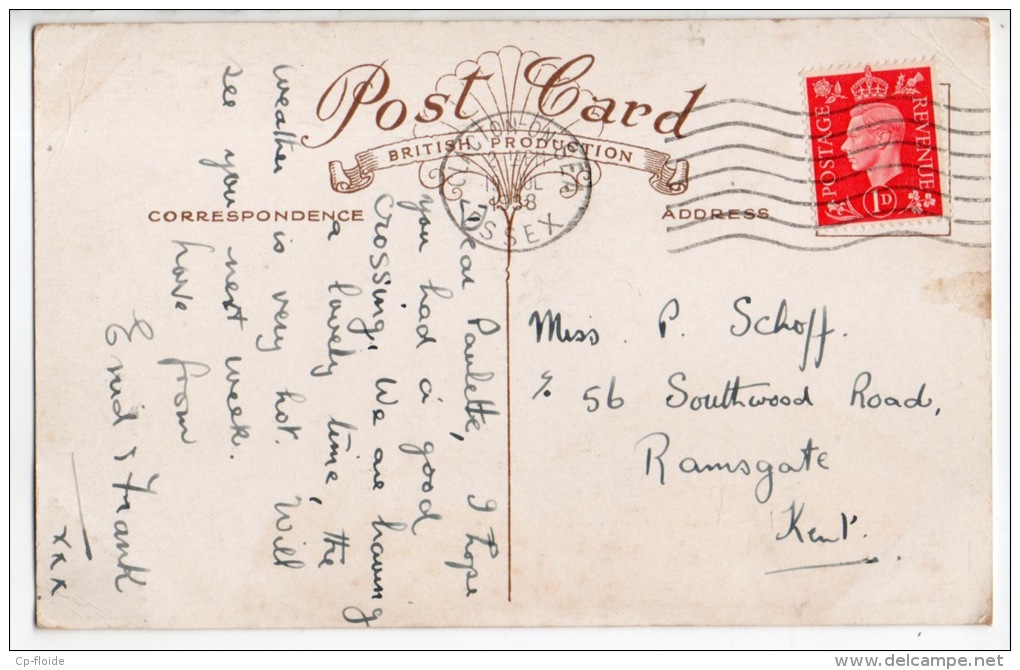 Post Card
BRITISH PRODUCTION
CORRESPONDENCE
ADDRESS
POSTAGE
REVENUE
1D
CLACTON-ON-SEA
JUL
1938
ESSEX
Dear Paulette, I hope
you had a good
crossing. We are having
a lovely time, the
weather is very hot. Will
see you next week.
love from
Enid & Frank
xxx
Miss. P. Schoff.
% 56 Southwood Road,
Ramsgate
Kent.
Cp-floide
www.delcampe.net